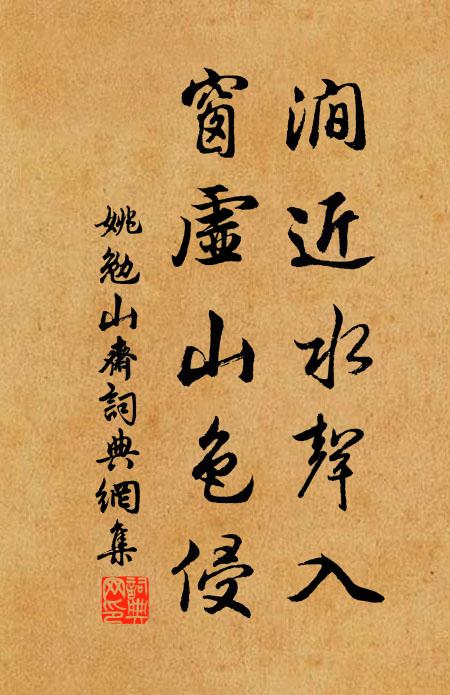 澗近水聲入
窗虛山色侵
姚勉山齋詞典網集
詞典
网印